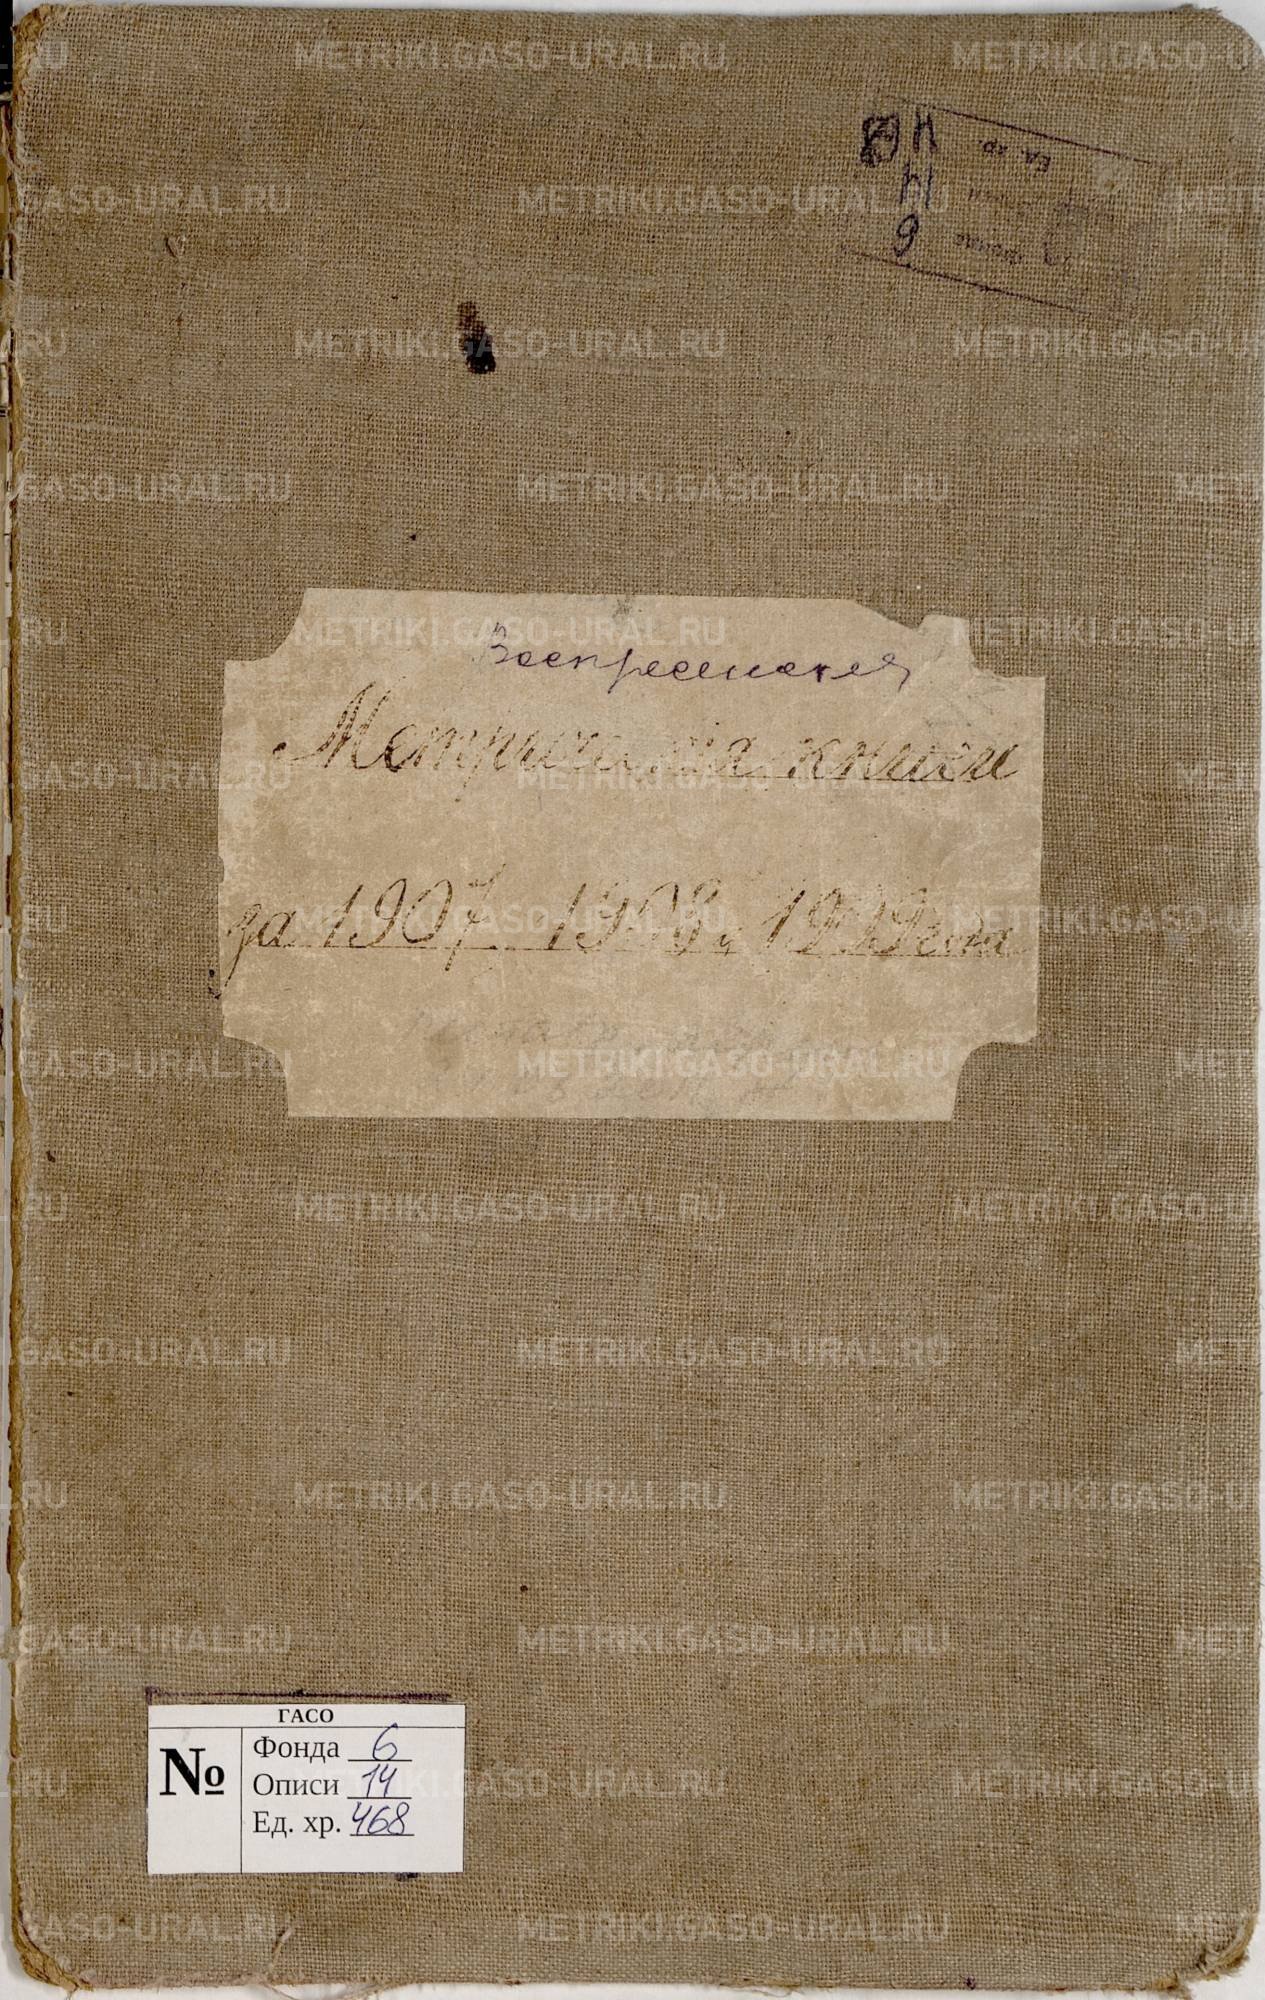 Воспресенская
Метрическая книги
за 1907 1908 и 1909 года
ГАСО
№
Фонда 6
Описи 14
Ед. хр. 468
METRIKI.GASO-URAL.RU